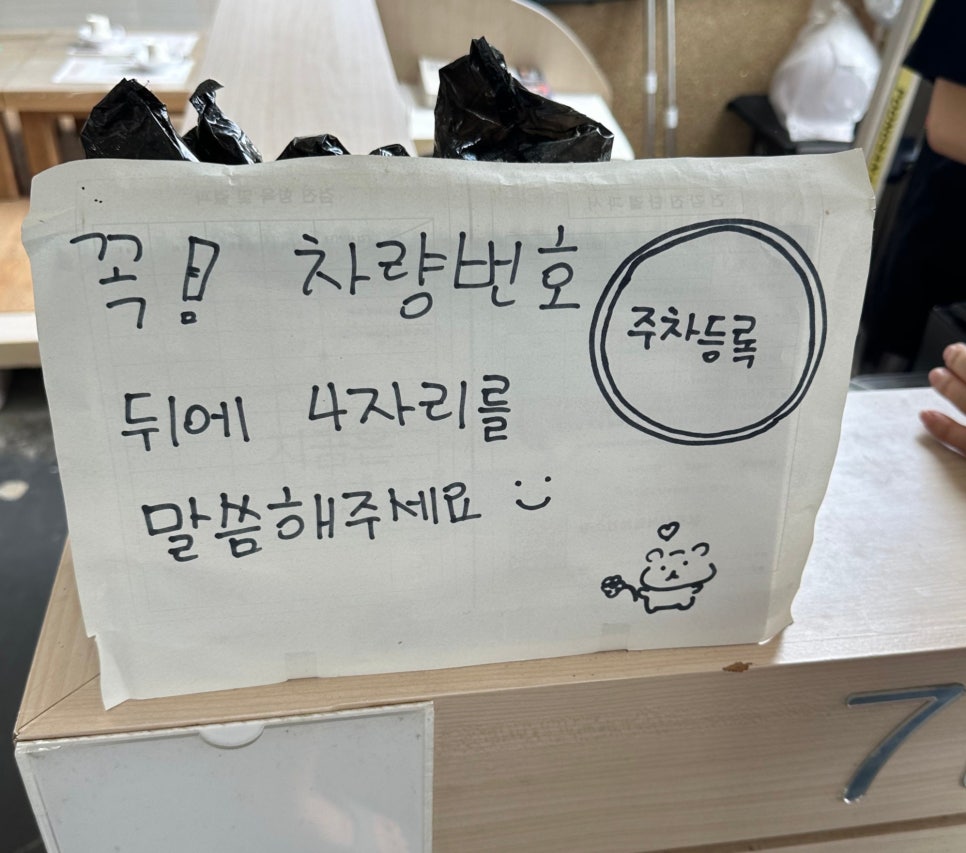 꼭! 차량번호
주차등록
뒤에 4자리를
말씀해주세요 :)
7